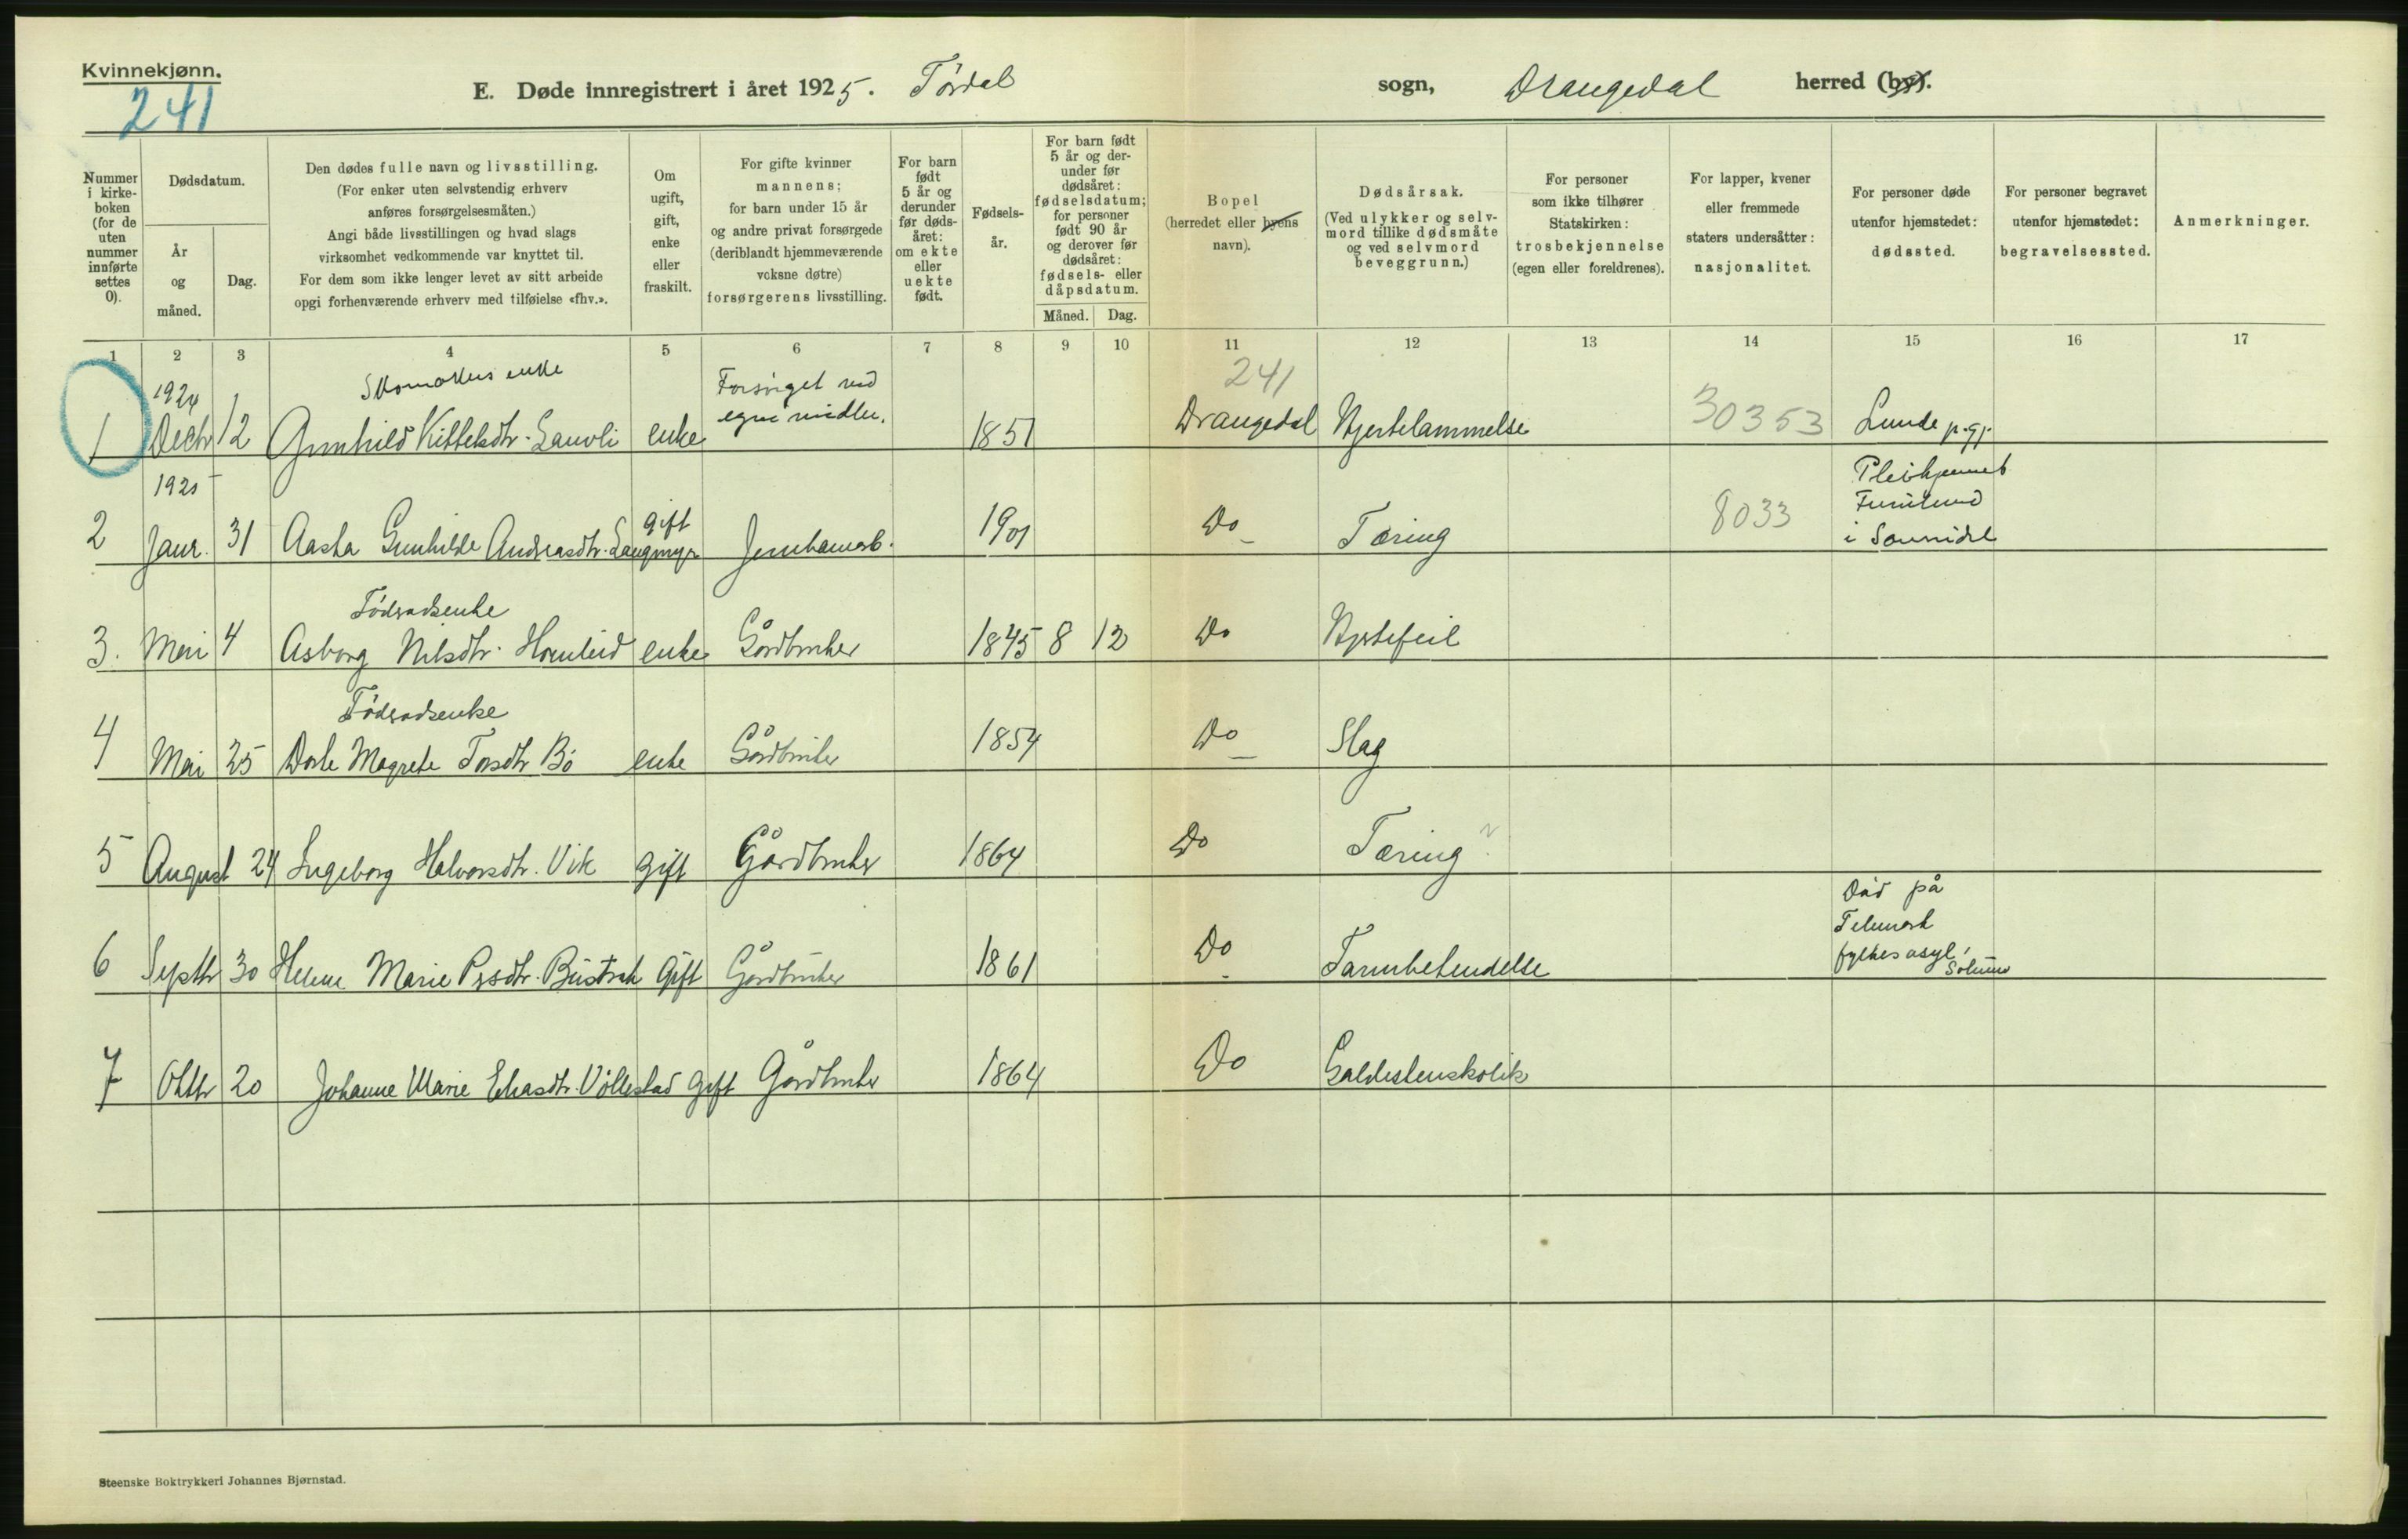 Kvinnekjønn.
241
E. Døde innregistrert i året 1925. Tørdal sogn, Drangedal herred (by).
Nummer i kirkeboken (for de uten nummer innførte settes 0).
Dødsdatum.
År og måned.
Dag.
Den dødes fulle navn og livsstilling.
(For enker uten selvstendig erhverv
anføres forsørgelsesmåten.)
Angi både livsstillingen og hvad slags
virksomhet vedkommende var knyttet til.
For dem som ikke lenger levet av sitt arbeide
opgi forhenværende erhverv med tilføielse «fhv.».
Om ugift, gift, enke eller fraskilt.
For gifte kvinner
mannens;
for barn under 15 år
og andre privat forsørgede
(deriblandt hjemmeværende
voksne døtre)
forsørgerens livsstilling.
For barn født 5 år og derunder før dødsåret: om ekte eller uekte født.
Fødselsår.
For barn født 5 år og derunder før dødsåret: fødselsdatum; for personer født 90 år og derover før dødsåret: fødsels- eller dåpsdatum.
Måned. Dag.
Bopel
(herredet eller byens
navn).
Dødsårsak.
(Ved ulykker og selvmord tillike dødsmåte og ved selvmord beveggrunn.)
For personer
som ikke tilhører
Statskirken:
trosbekjennelse
(egen eller foreldrenes).
For lapper, kvener
eller fremmede
staters undersåtter:
nasjonalitet.
For personer døde
utenfor hjemstedet:
dødssted.
For personer begravet
utenfor hjemstedet:
begravelsessted.
Anmerkninger.
1 2 3 4 5 6 7 8 9 10 11 12 13 14 15 16 17
1924 Skomakers enke Forsørget ved 241
1 Decbr 12 Gunhild Kittelsdtr. Lauvli enke egne midler. 1851 Drangedal Hjertelammelse 30353 Lunde p.gj.
1925 Pleiehjemmet
2 Janr. 31 Aasta Gunhilde Andreasdtr. Langmyr gift Jernbanearb. 1901 Do Tæring 8033
i Sannidal
Föderådsenke
3. Mai 4 Asborg Nilsdtr. enke Gårdbruker 1845 8 12 Do Hjertefeil
Föderådsenke
4 Mai 25 Dorte Magrete Torsdtr Bö enke Gårdbruker 1854 Do Slag
5 August 24 Ingeborg Halvorsdtr. Vik gift Gårdbruker 1864 Do Tæring ?
Död på
Telemark
6 Septbr 30 Helene Marie gift Gårdbruker 1861 Do Tarmbetendelse fylkesasyl, Solum
7 Oktbr 20 Johanne Marie Eliasdtr. Völlestad gift Gårdbruker 1864 Do Galdestenskolik
Steenske Boktrykkeri Johannes Bjørnstad.